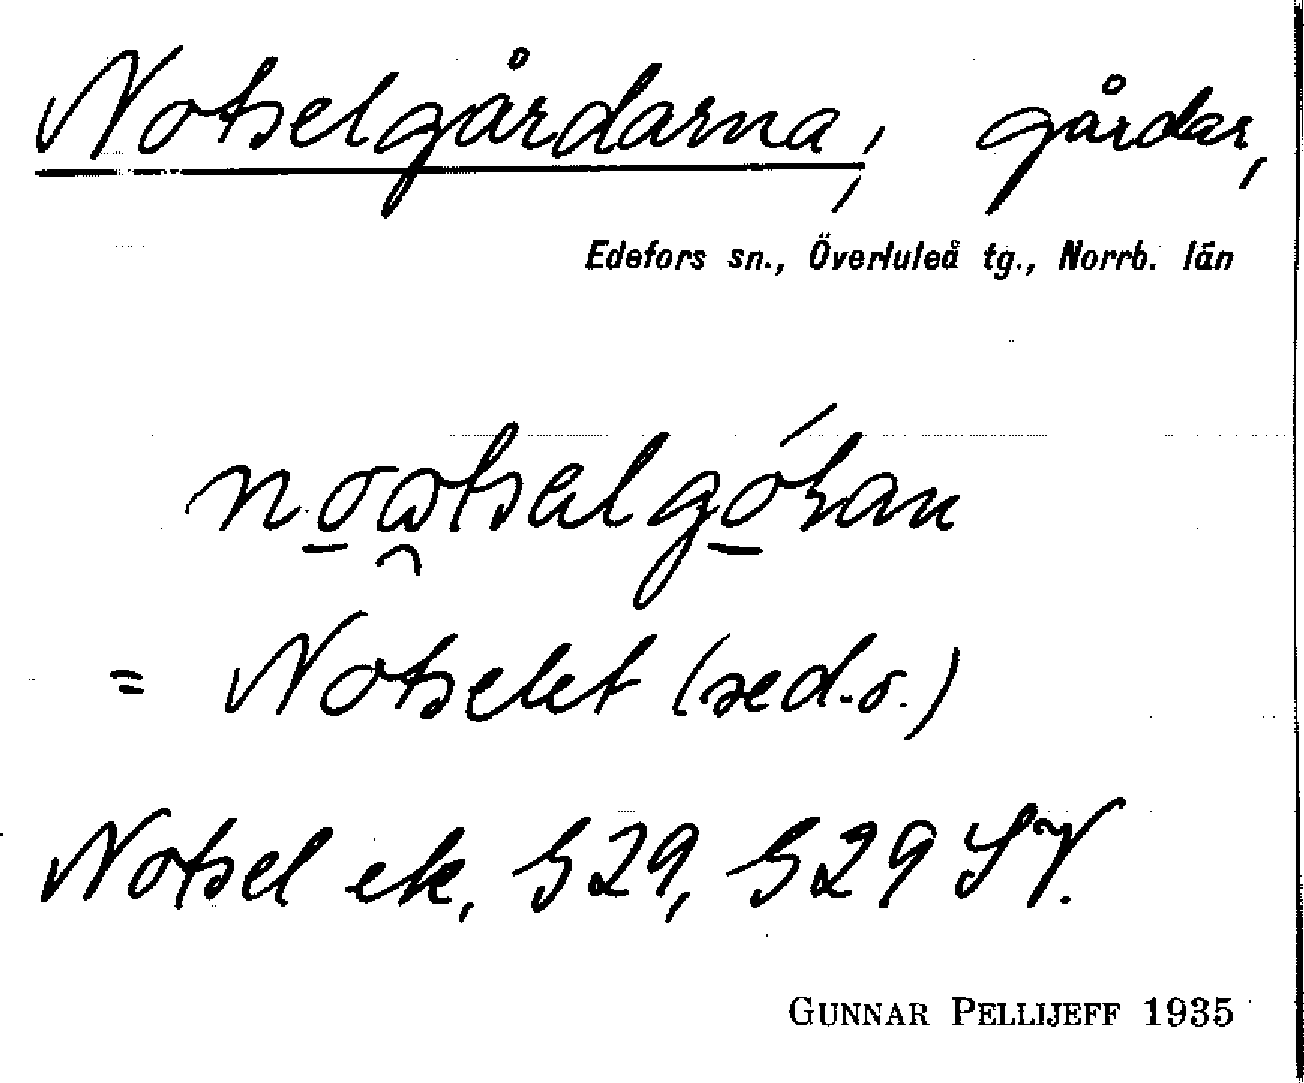 Notselgårdarna, gårdar,
Edefors sn., Överluleå tg., Norrb. län
= Notselet (sed.o.)
Notsel ek, 529, 529 SV.
GUNNAR PELLIJEFF 1935